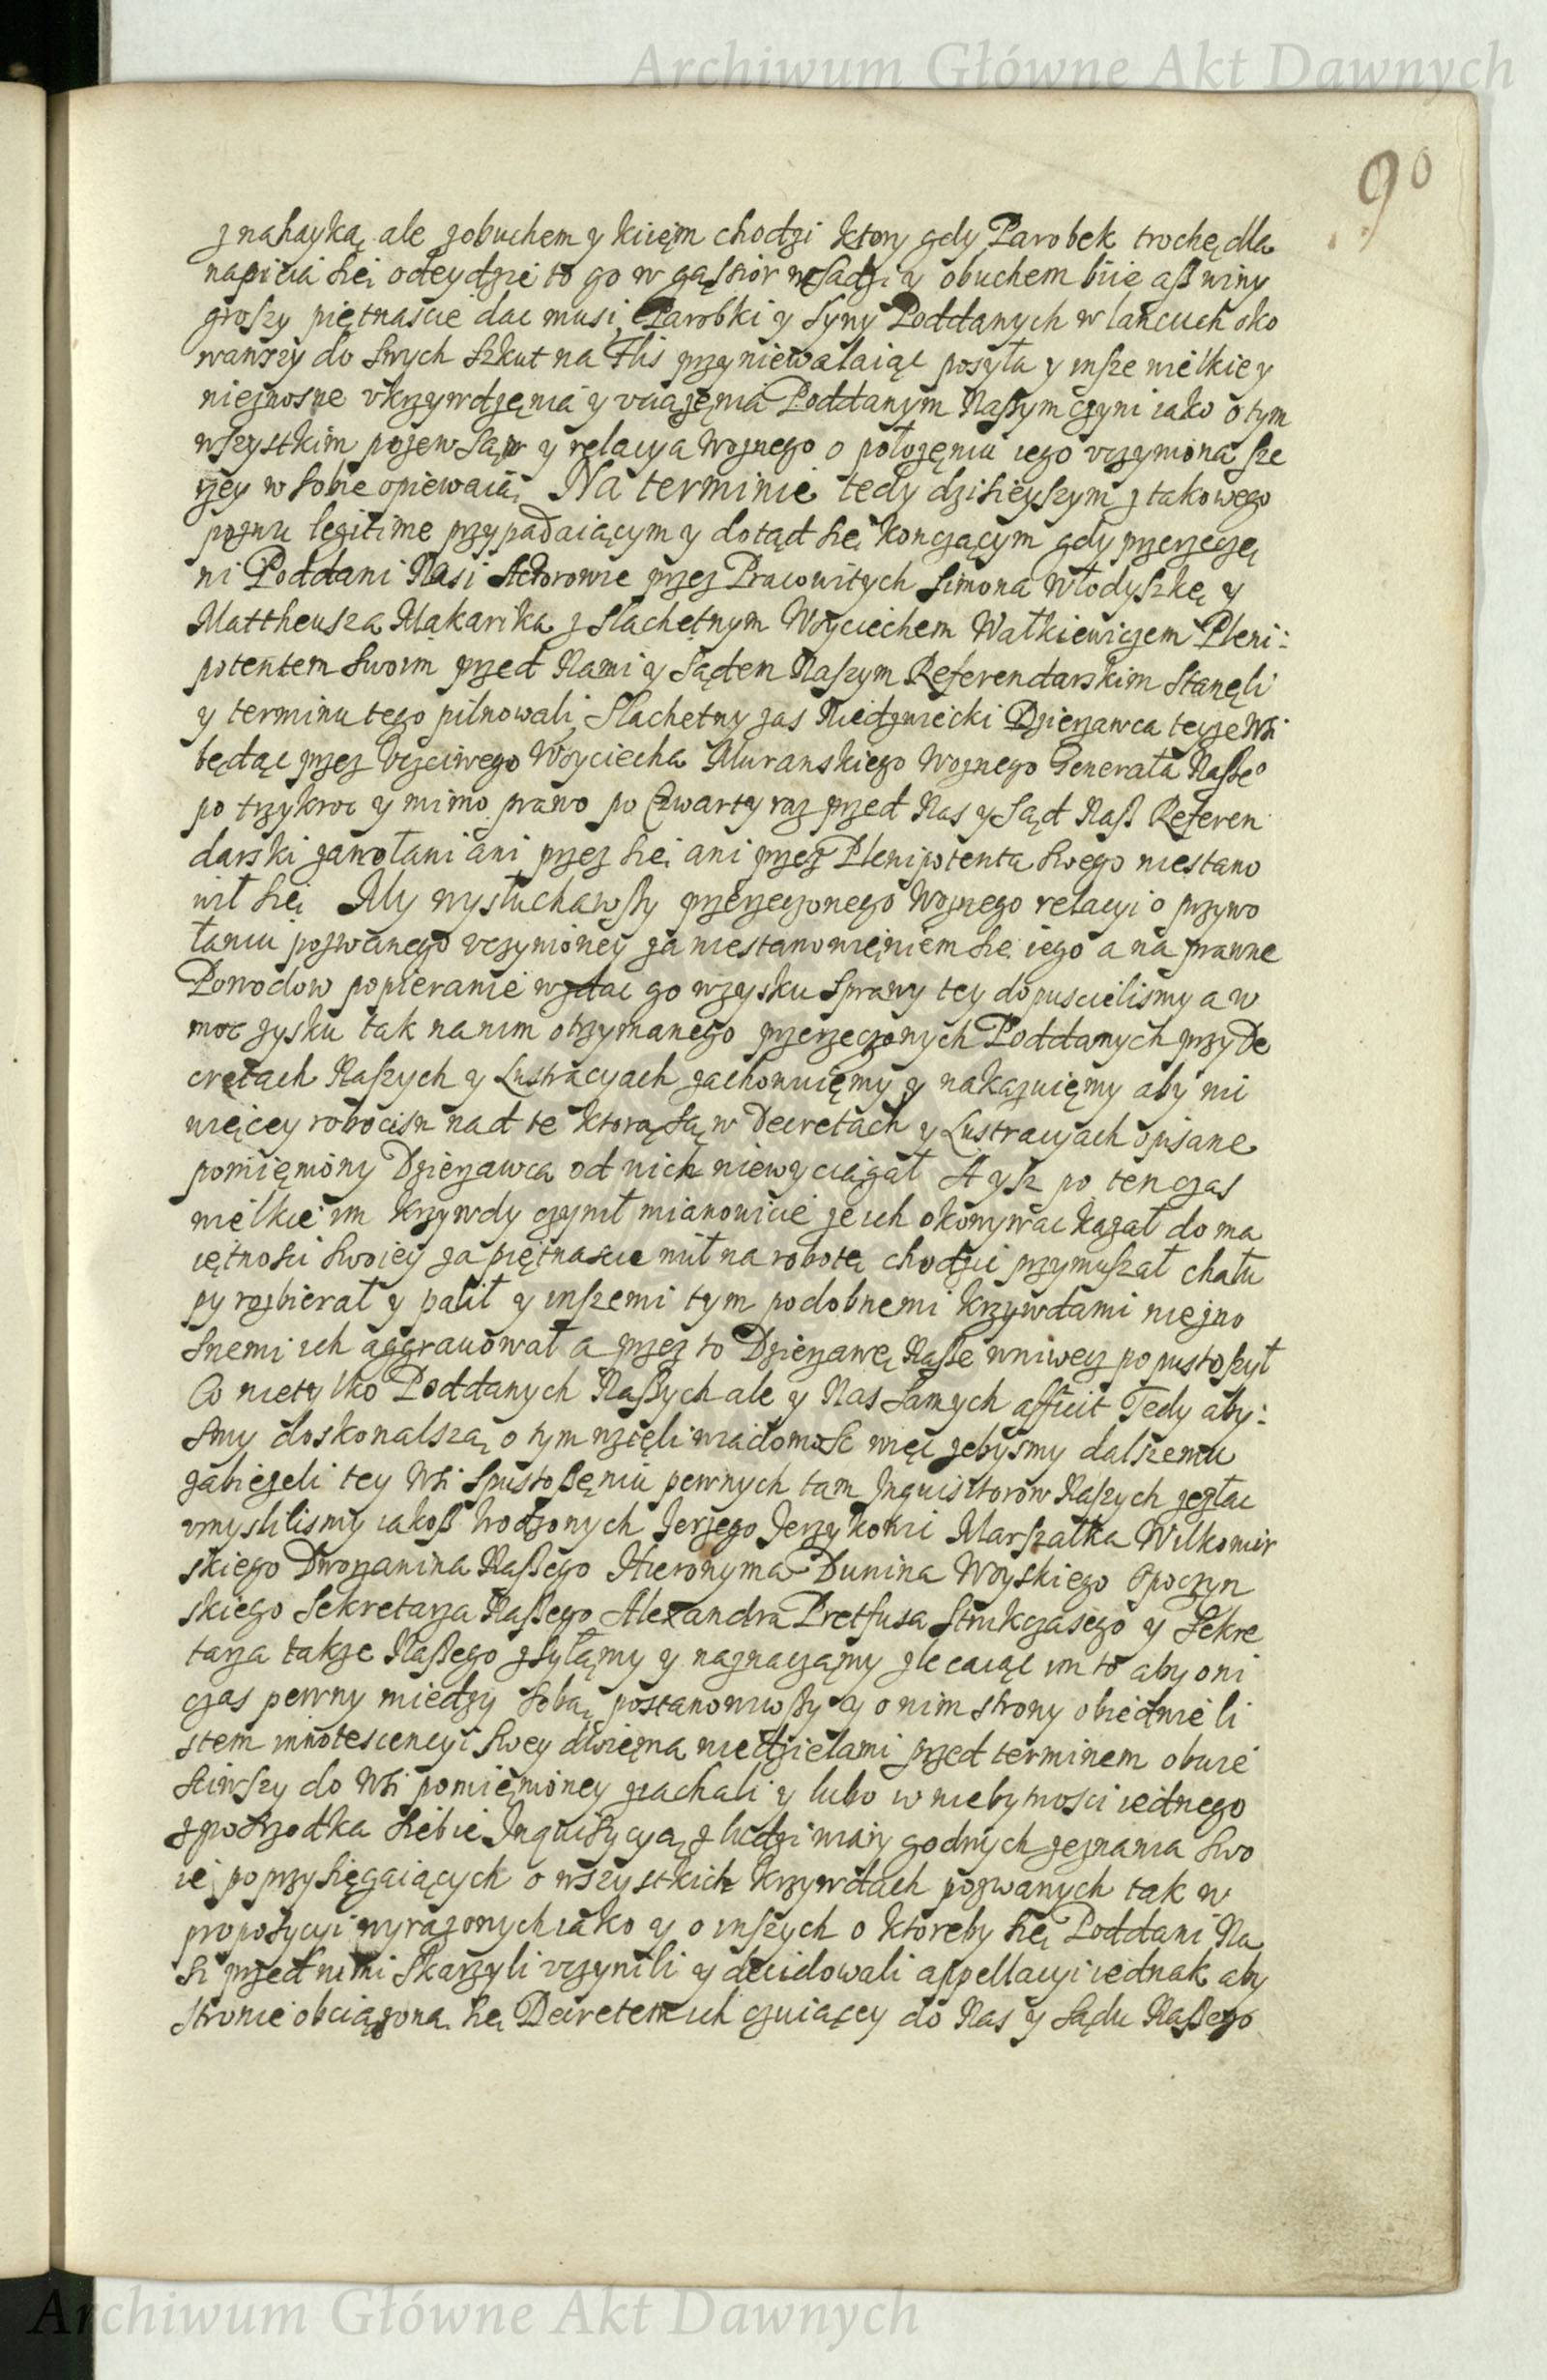 Archiwum Główne Akt Dawnych
90
z nahayką ale zobuchem y kiięm chodzi ktory gdy Parobek trochę dla
napicia się odeydzie to go w gąsior wsadzi y obuchem biie asz winy
groszy piętnascie dac musi, Parobki y syny Poddanych w lancuch oko
wawszy do swych szkut na Flis przyniewalaiąc posyła y insze wielkie y
nieznosne vkrzywdzęnia y vciązęnia Poddanym Naszym czyni iako o tym
wszystkim pozew sąm y relacya Woznego o połozęniu iego vczyniona sze
rzey w sobie opiewaią. Na terminie tedy dzisieyszym z takowego
pozwu legitime przypadaiącym y dotąd się konczącym gdy przerzeczę
ni Poddani Nasi Actorowie przez Pracowitych Simona Włodyszkę y
Mattheusza Makarika z Slachetnym Woyciechem Wałkiewiczem Pleni:
potentem swoim przed Nami y Sądem Naszym Referendarskim stanęli
y terminu tego pilnowali, Slachetny zas Niedzwiecki Dzierzawca teyze Wsi
będąc przez vczciwego Woyciecha Muranskiego Woznego Generała Nasze°
po trzykroc y mimo prawo po czwarty raz przed Nas y Sąd Nasz Referen
darski zawołani ani przez się ani przez Plenipotenta swego niestano
wił się. My wysłuchawszy przerzeczonego Woznego relacyi o przywo
łaniu pozwanego vczynioney za niestanowięniem się iego a na prawne
Powodow popieranie wzdac go wzysku sprawy tey dopuscilismy a w
moc zysku tak na nim otrzymanego przerzeczonych Poddanych przy De
cretach Naszych y Lustracyach zachowuięmy y nakazuięmy aby ni
więcey robocizn nad te ktorą są w Decretach y Lustracyach opisane
pomięniony Dzierzawca od nich niewyciągał A ysz po ten czas
wielkie im krzywdy czynił mianowicie ze ich okowywac kazał do ma
iętnosci swoiey za piętnascie mil na robotę chodzic przymuszał chału
py rozbierał y palił y inszemi tym podobnemi krzywdami niezno
snemi ich aggrauował a przez to Dzierzawę Nasze wniwecz popustoszył
Co nietylko Poddanych Naszych ale y Nas samych afficit Tedy aby:
smy doskonalszą o tym wzięli wiadomosc więc zebysmy dalszemu
zabiezeli tey Wsi spustoszęniu pewnych tam Inquisitorow Naszych zezłac
vmyslilismy iakosz Vrodzonych Jerzego Jerzykowi Marszałka Wilkomir
skiego Dworzanina Naszego Hieronyma Dunina Woyskiego Opoczyn
skiego Sekretarza Naszego Alexandra Pretfusa Strukczasego y Sekre
tarza takze Naszego zsyłąmy y naznacząmy zlecaiąc im to aby oni
czas pewny miedzy sobą postanowiwszy y o nim strony obiedwie li
stem innotescencyi swey dwięma niedzielami przed terminem obwie
sciwszy do Wsi pomięnioney ziachali y lubo w niebytnosci iednego
z posrzodka siebie Inquisycyą z ludzi wiary godnych zeznania swo
ie poprzysięgaiących o wszystkich krzywdach pozwanych tak w
propozycyi wyrazonych iako y o inszych o ktoreby się Poddani Na
si przed nimi skarzyli vczynili y decidowali appellacyi iednak aby
stronie obciązoną się Decretem ich czuiącey do Nas y Sądu Naszego
Archiwum Główne Akt Dawnych